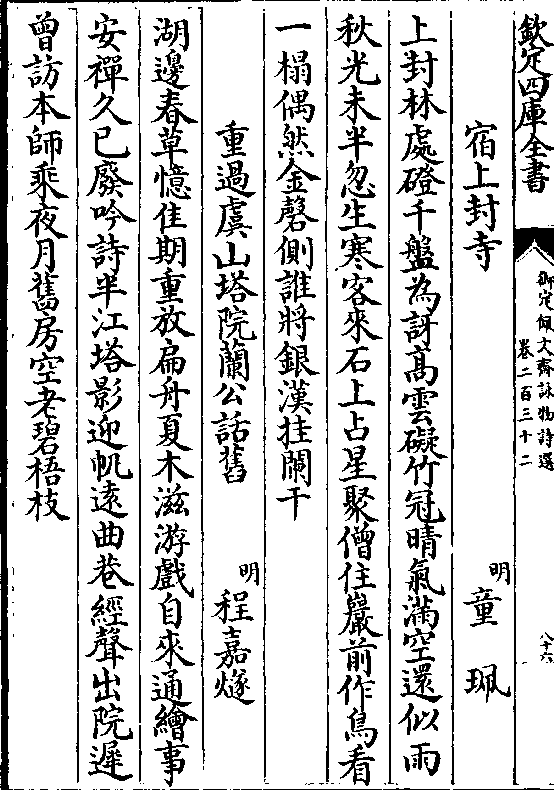 欽定四庫全書
御定佩文齋詠物詩選
卷二百三十二
八十六
宿上封寺
明
童珮
上封林處磴千盤為訝髙雲礙竹冠晴氣滿空還似雨
秋光未半忽生寒客來石上占星聚僧住巖前作鳥看
一榻偶然金磬側誰將銀漢挂闌干
重過虞山塔院蘭公話舊
明
程嘉燧
湖邊春草憶佳期重放扁舟夏木滋游戲自來通繪事
安禪久已廢吟詩半江塔影迎帆遠曲巷經聲出院遲
曾訪本師乘夜月舊房空老碧梧枝